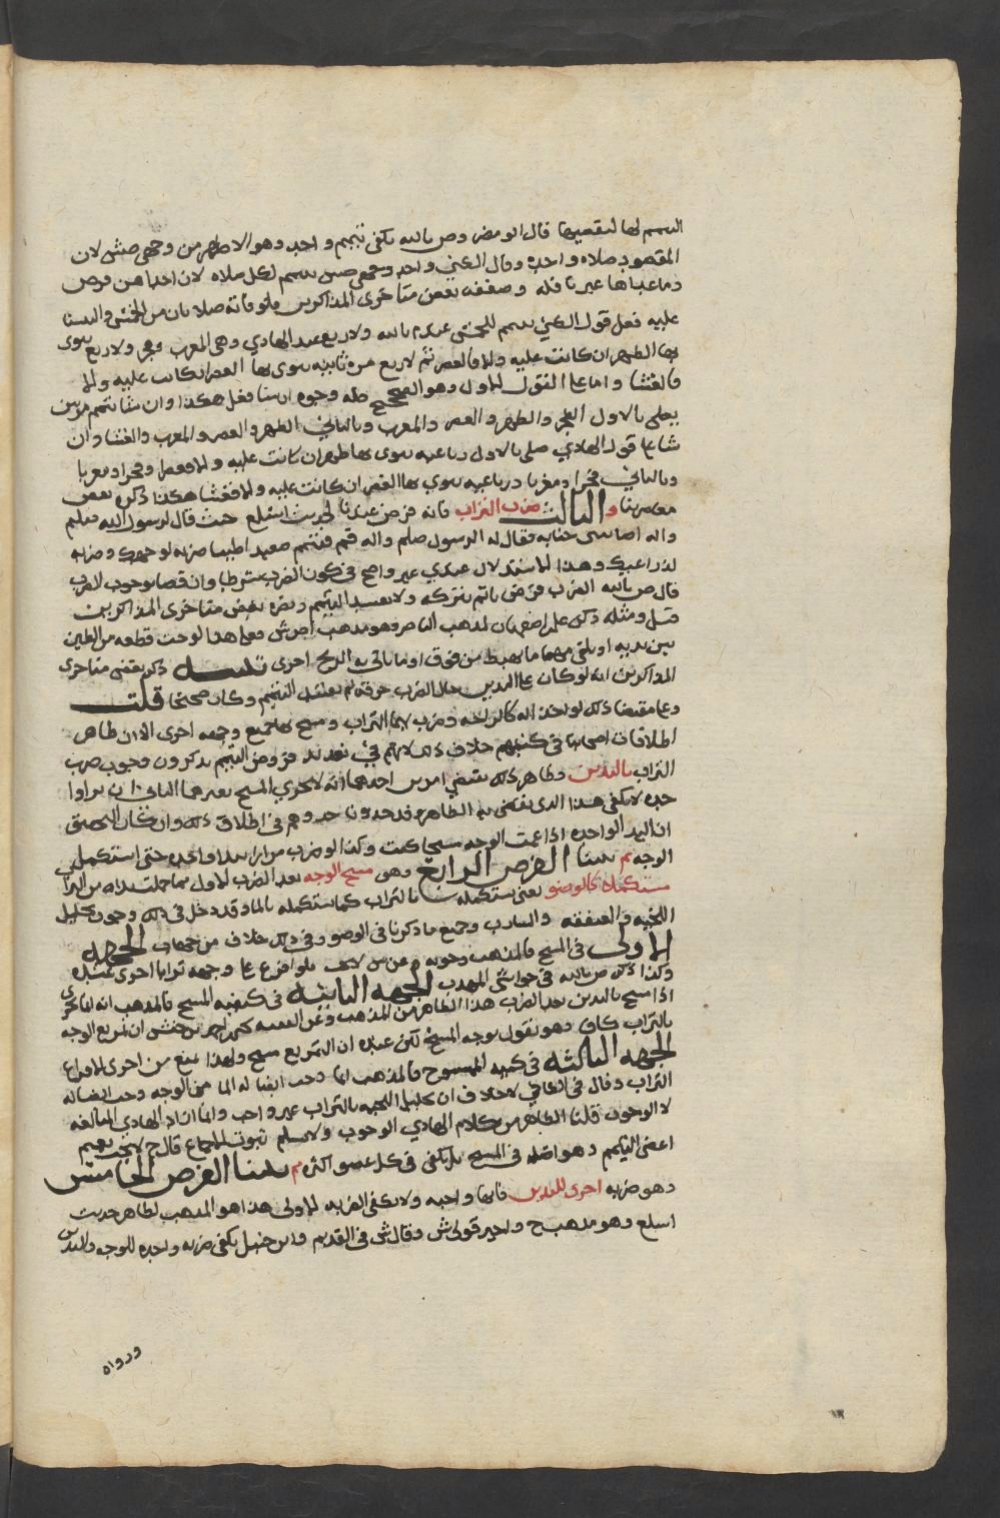 التيمم لها لتقصيها قال ابو مضر وص بالله يكفى تيمم واحد وهو الاظهر من وجهى صش لان
المقصود صلاه واحده وقال الكنى واحد وجهى صش تيمم لكل صلاه لان احداهن فرض
وما عداها غير نافله وضعفه بعض متاخرى المذاكرين فلو فاته صلاتان من الخمس والتبستا
عليه فعلى قول الكنى تيمم للخمس عند م بالله ولاربع عند الهادي وهى المغرب وفجر ولاربع ينوى
بها الظهر ان كانت عليه والا فالعصر ثم لاربع مره ثانيه ينوى بها العصر ان كانت عليه والا
فالعشا واما على القول الاول وهو الصحيح فله وجوه ان شا فعل هكذا وان شا تيمم مرتين
يصلى بالاول الفجر والظهر والعصر والمغرب وبالثاني الظهر والعصر والمغرب والعشا وان
شا على قول الهادي صلى بالاول رباعيه ينوى بها ظهر ان كانت عليه والا فعصرا وفجرا ومغربا
وبالثاني فجرا ومغربا ورباعيه ينوي بها العصر ان كانت عليه والا فعشا هكذا ذكره بعض
معاصرينا و الثالث ضرب التراب فانه فرض عندنا لحديث اسلع حيث قال لرسول الله صلعم
واله اصابتنى جنابه فقال له الرسول صلعم واله قم فتيمم صعيدا طيبا ضربه لوجهك وضربه
لذراعيك وهذا الاستدلال عندي غير واضح في كون الضرب شرطا وان قضا بوجوب الضرب
قال ص بالله الضرب فرض ياثم بتركه ولا يفسد التيمم ونصره بعض متاخرى المذاكرين
قبل ومثله ذكره على اصفهان لمذهب الناصر وهو مذهب احد ش فعلى هذا لو حت قطعه من الطين
بين يديه او يلقى بهما ما يهبط من فوق او ما ياتى به الريح اجزى تنبيه ذكر بعض متاخرى
المذاكرين انه لو كان على اليدين حال الضرب خرقه لم يفسد التيمم وكان صحيحا قلت
وعلى مقتضا ذلك لو اتخذ اله كالراحه وضرب بها التراب ومسح بها جميع وجهه اجزى الا ان ظاهر
اطلاقات اصحابنا في كتبهم خلاف ذلك لانهم في تعديد فروض التيمم يذكرون وجوب ضرب
التراب باليدين وظاهر ذلك يقتضي امرين احدهما انه لا يجزي المسح بغيرهما الثاني ان
 هذا الذى يقضى به الظاهر  وهم في اطلاق ذلك وان كان التحقيق
ان اليد الواحده اذا عمت الوجه مسحا كفت وكذا لو ضرب مرارا بيد واحده حتى استكمل
الوجه م بينا الفرض الرابع وهو مسح الوجه بعد الضرب الاول مما حملت يداه من التراب
مستكملا كالوضو يعنى يستكمله بالتراب كما يستكمله بالماء وقد دخل في ذلك وجوب تخليل
اللحيه والعنفقه والشارب وجميع ما ذكرنا في الوضو وفي ذلك خلاف من جهات الجهه
الاولى في المسح فالمذهب وجوبه   فلو افرغ على وجهه ترابا اجزى عنده
وكذا ذكر ص بالله في حواشى المهذب الجهه الثانيه في كيفيه المسح فالمذهب انه لا يجزي
اذا مسح باليدين بعد الضرب هذا الظاهر من المذهب وعن الفقيه  ان تمريغ الوجه
بالتراب كاف وهو يقول بوجه المسح لكن عنده ان التمريغ مسح ولهذا منع من اجزى الافراغ
الجهه الثالثه في كميه الممسوح فالمذهب انما وجب ايصاله الما من الوجه وجب ايصاله
التراب وقال في الكافي لا خلاف ان تخليل اللحيه بالتراب غير واجب وانما اراد الهادي المبالغه
لا الوجوب قلنا الظاهر من كلام الهادي الوجوب ولا نسلم ثبوت الاجماع قال ح لا يجب تعميم
اعضى التيمم وهو اصله في المسح بل يكفى في كل عضو اكثره م بينا الفرض الخامس
وهو ضربه اخرى لليدين فانها واجبه ولا تكفى الضربه الاولى هذا هو المذهب لظاهر حديث
اسلع وهو مذهب ح واخير قولى ش وقال ش في القديم وابن حنبل يكفى ضربه واحده للوجه واليدين
ورواه